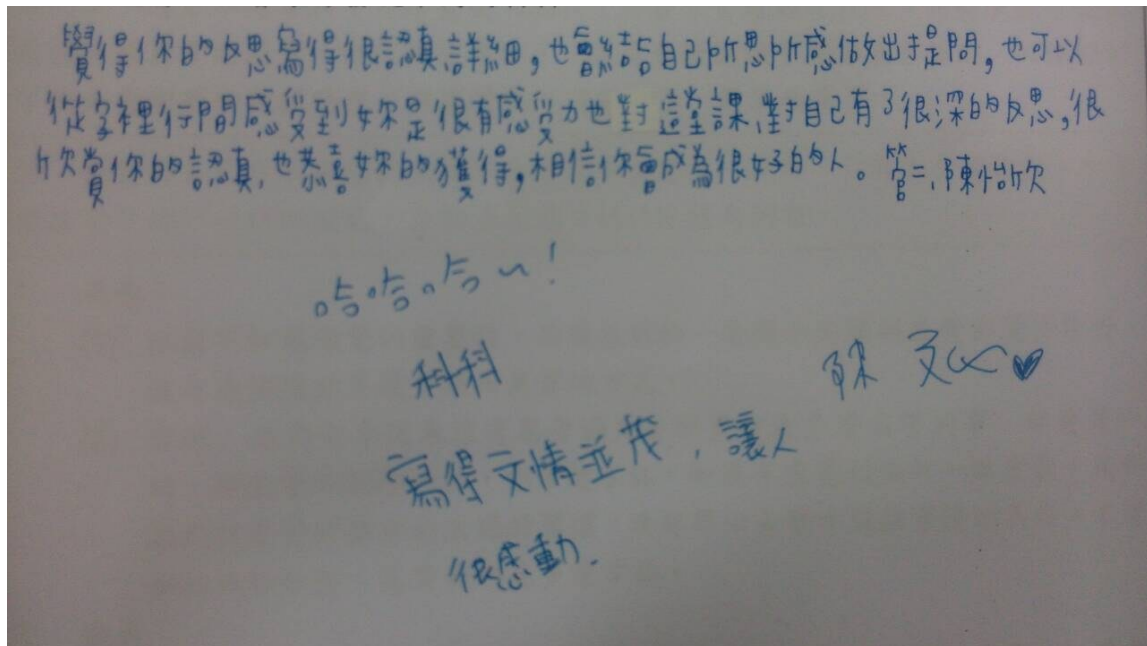 覺得你的反思寫得很認真詳細，也會結合自己所思所感做出提問，也可以
從字裡行間感受到妳是很有感受力也對這堂課、對自己有了很深的反思，很
欣賞你的認真，也恭喜妳的獲得，相信你會成為很好的人。管二、陳怡欣
哈哈。哈～！
科科
陳
寫得文情並茂，讓人
很感動.